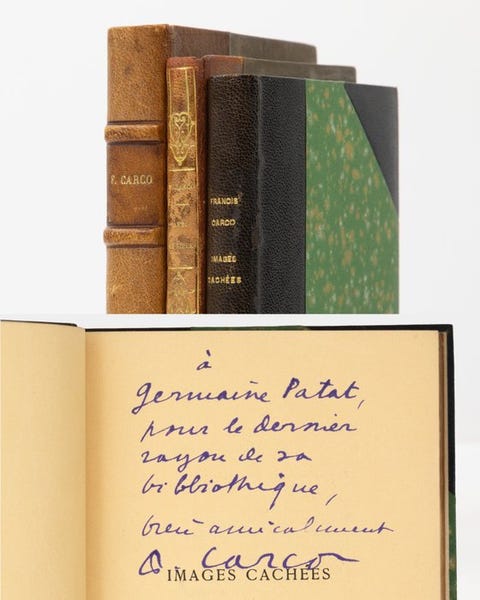 F. CARCO
FRANCIS
CARCO
IMAGES
CACHÉES
à
Germaine Patat,
pour le dernier
rayon de sa
bibliothèque,
bien amicalement
Carco
IMAGES CACHÉES